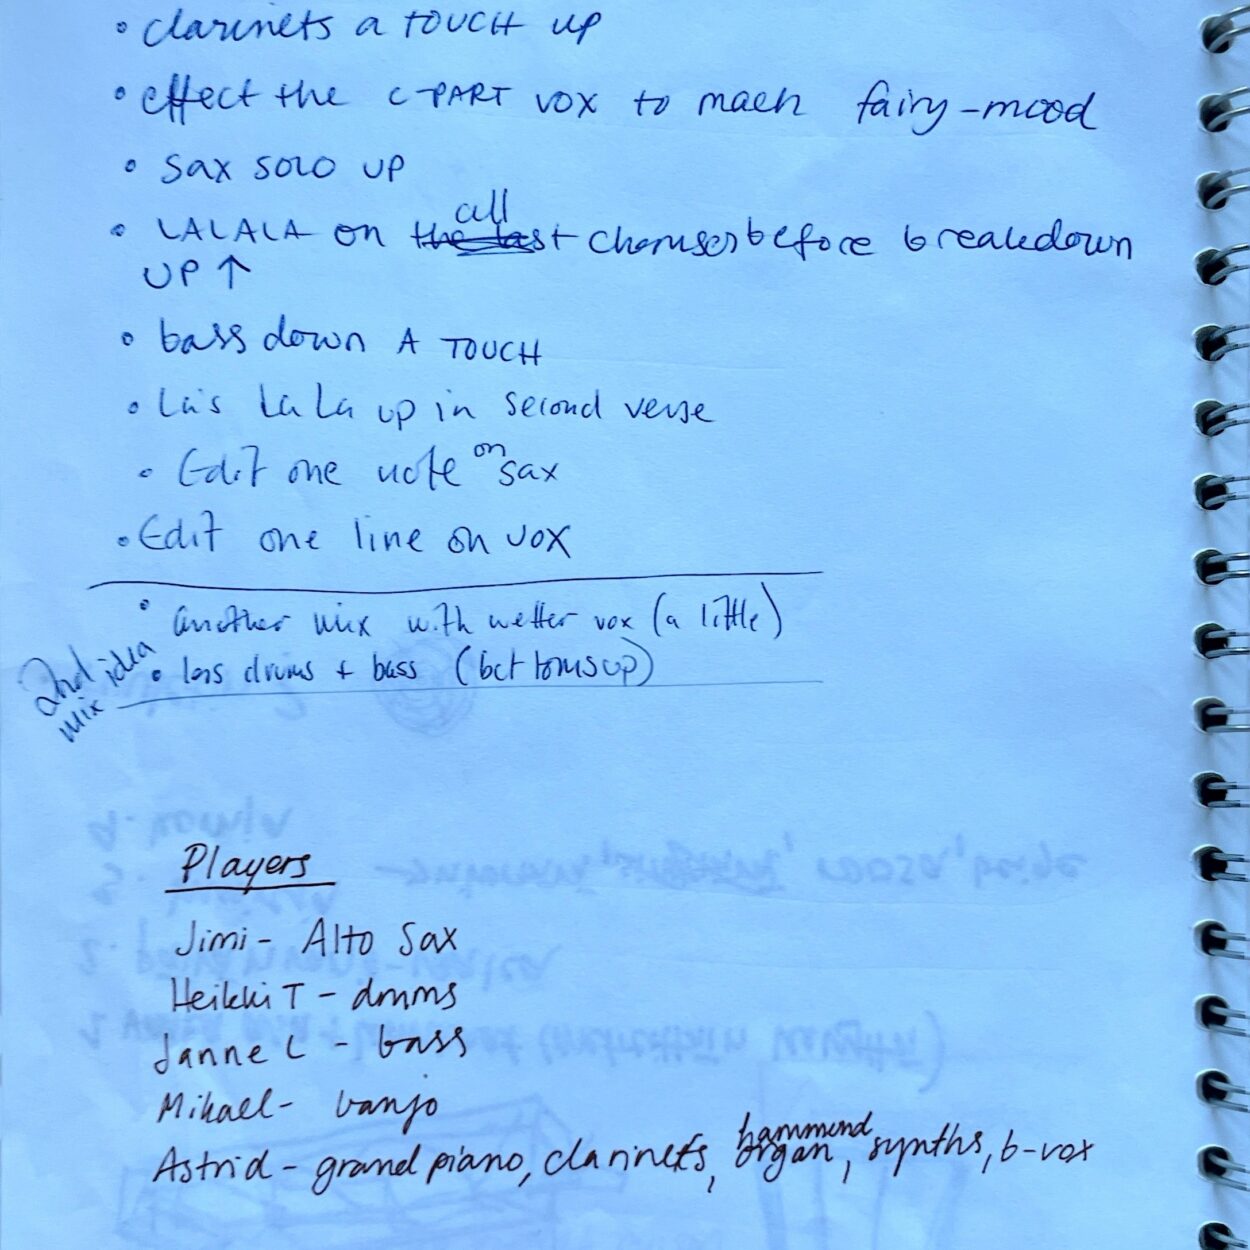 • clarinets a TOUCH up
• effect the C-PART vox to mach fairy-mood
• sax solo up
all
• LALALA on the last choruses before breakdown
UP ↑
• bass down A TOUCH
• La's La La up in second verse
• Edit one note on sax
• Edit one line on vox
• another mix with wetter vox (a little)
• less drums + bass (bct toms up)
2nd mix idea
Players
Jimi - Alto Sax
Heikki T - drums
Janne L - bass
Mikael - banjo
Astrid - grand piano, clarinets, hammond organ, synths, b-vox